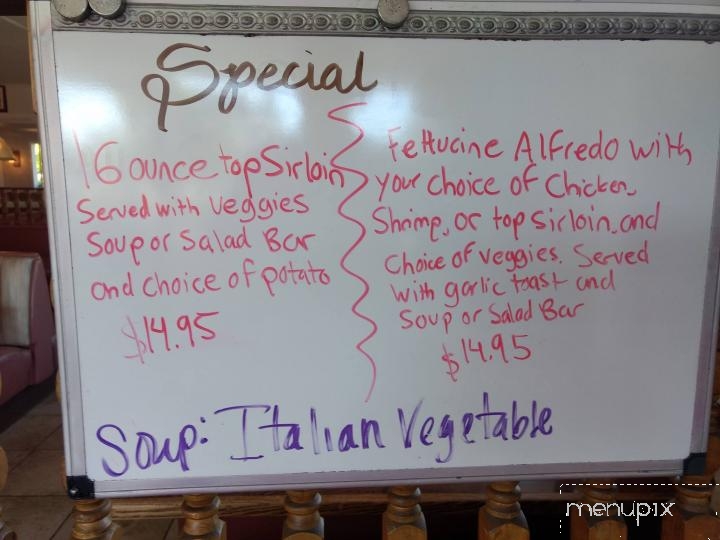 Special
16 ounce top Sirloin
Served with veggies
Soup or Salad Bar
and choice of potato
$14.95
Fettucine Alfredo with
your choice of Chicken,
Shrimp, or top sirloin, and
choice of veggies. Served
with garlic toast and
Soup or Salad Bar
$14.95
Soup: Italian Vegetable
menupix